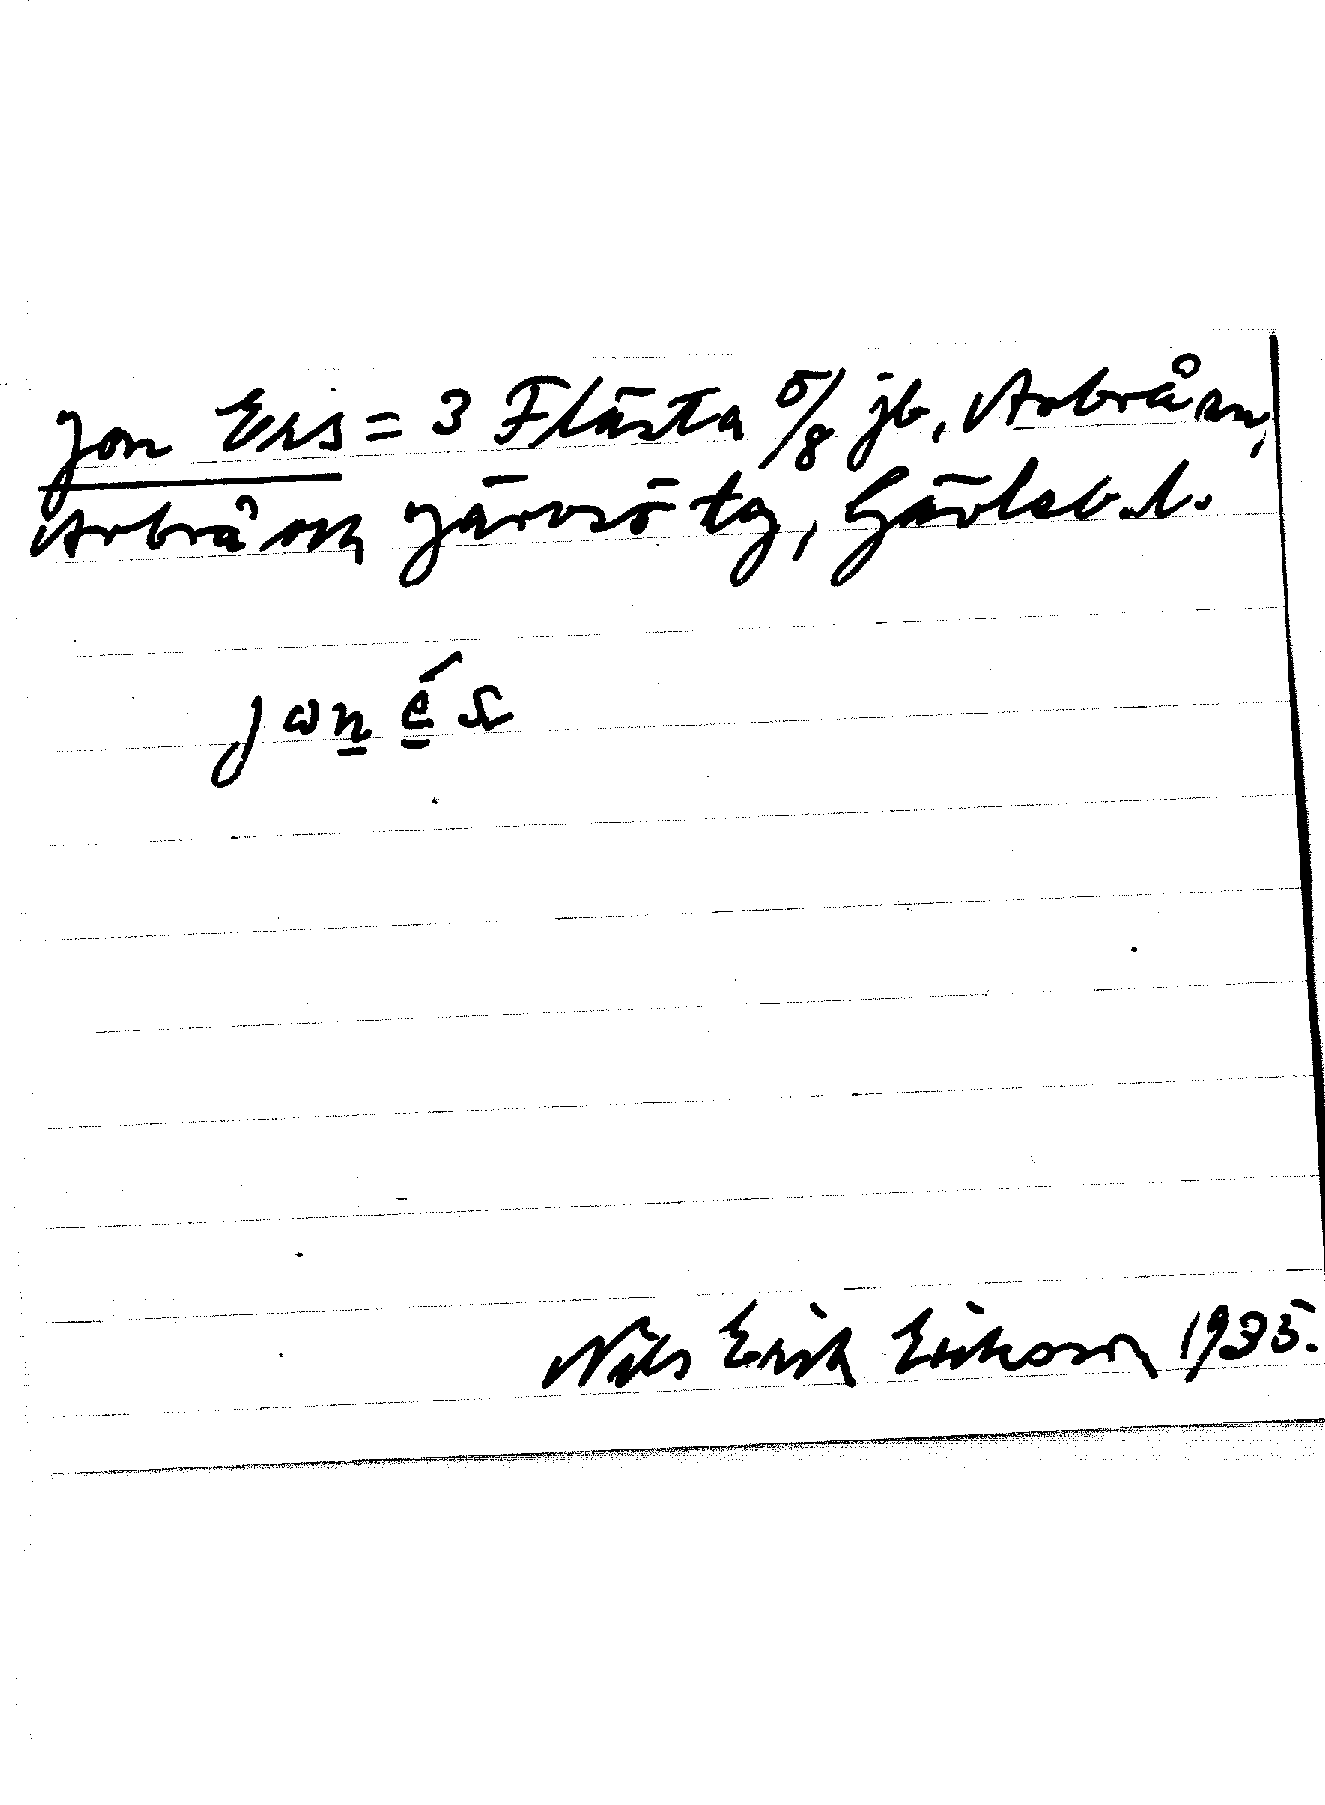 Jon Ers = 3 Flästa 5/8 jb, Arbrå sn,
Arbrå och Järvsö tg, Gävleb. l.
jωn és
Nils Erik Eriksson 1935.